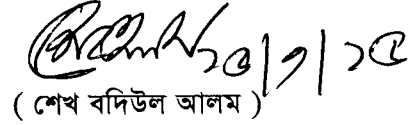 ১৫/৭/১৫
( শেখ বদিউল আলম )